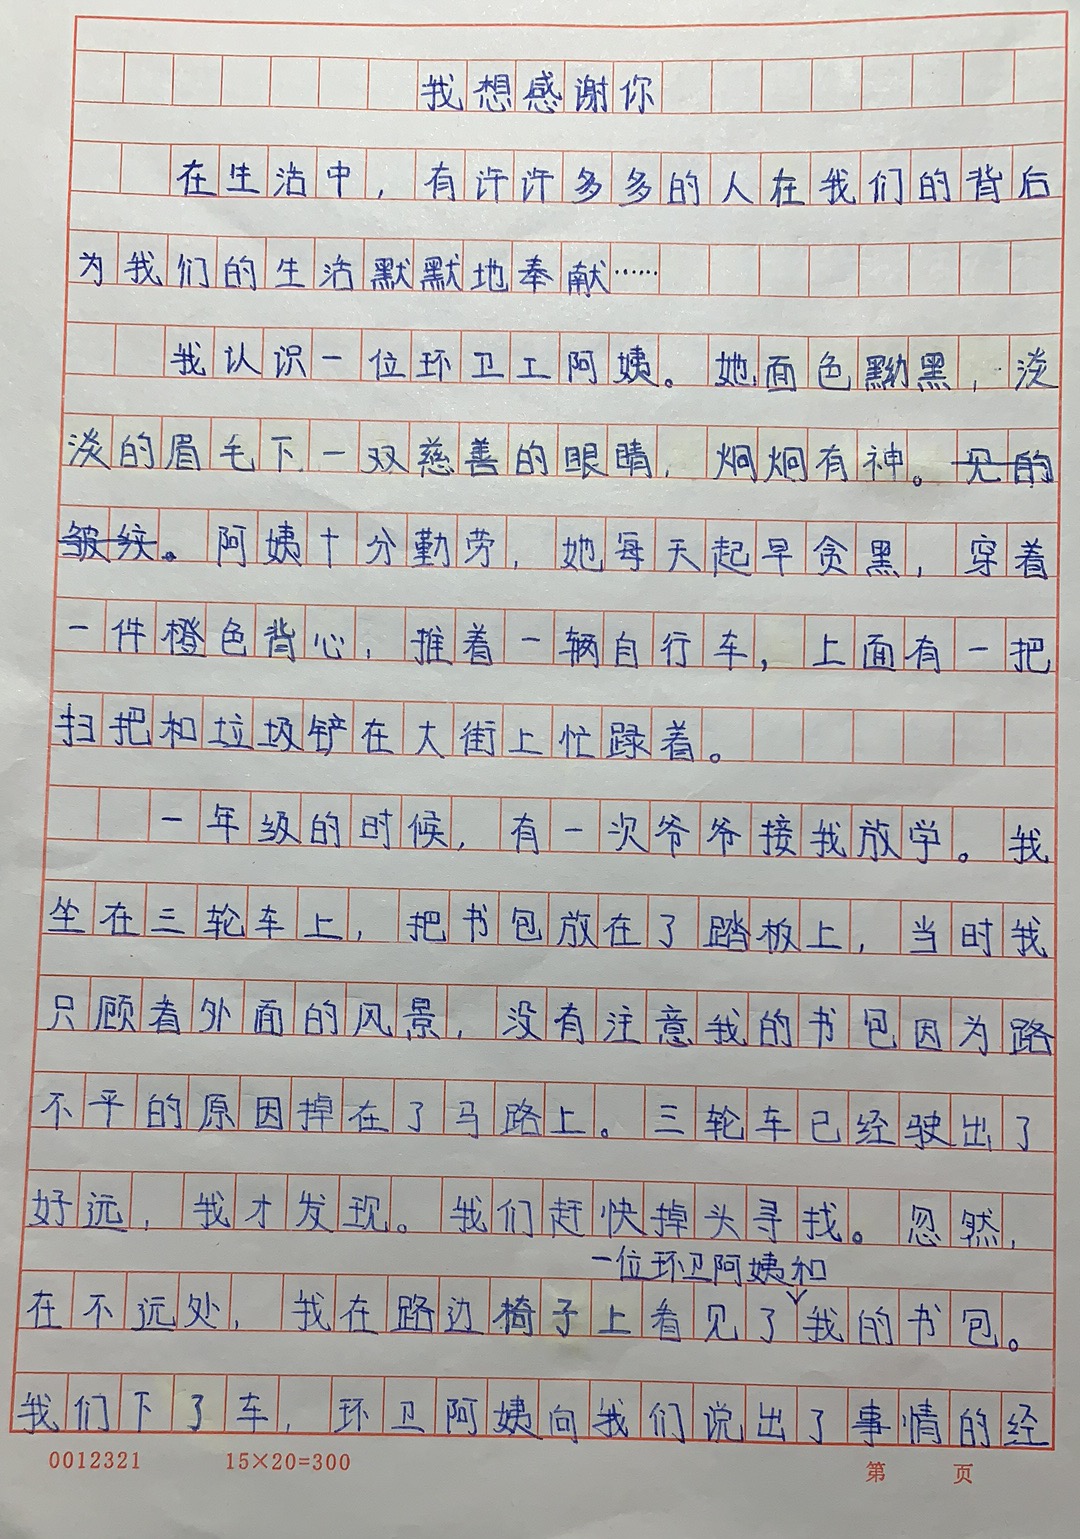 我想感谢你
在生活中，有许许多多的人在我们的背后
为我们的生活默默地奉献……
我认识一位环卫工阿姨。她面色黝黑，淡
淡的眉毛下一双慈善的眼睛，炯炯有神。见的
皱纹。阿姨十分勤劳，她每天起早贪黑，穿着
一件橙色背心，推着一辆自行车，上面有一把
扫把和垃圾铲在大街上忙碌着。
一年级的时候，有一次爷爷接我放学。我
坐在三轮车上，把书包放在了踏板上，当时我
只顾着外面的风景，没有注意我的书包因为路
不平的原因掉在了马路上。三轮车已经驶出了
好远，我才发现。我们赶快掉头寻找。忽然，
一位环卫阿姨和
在不远处，我在路边椅子上看见了我的书包。
我们下了车，环卫阿姨向我们说出了事情的经
0012321 15×20=300 第 页